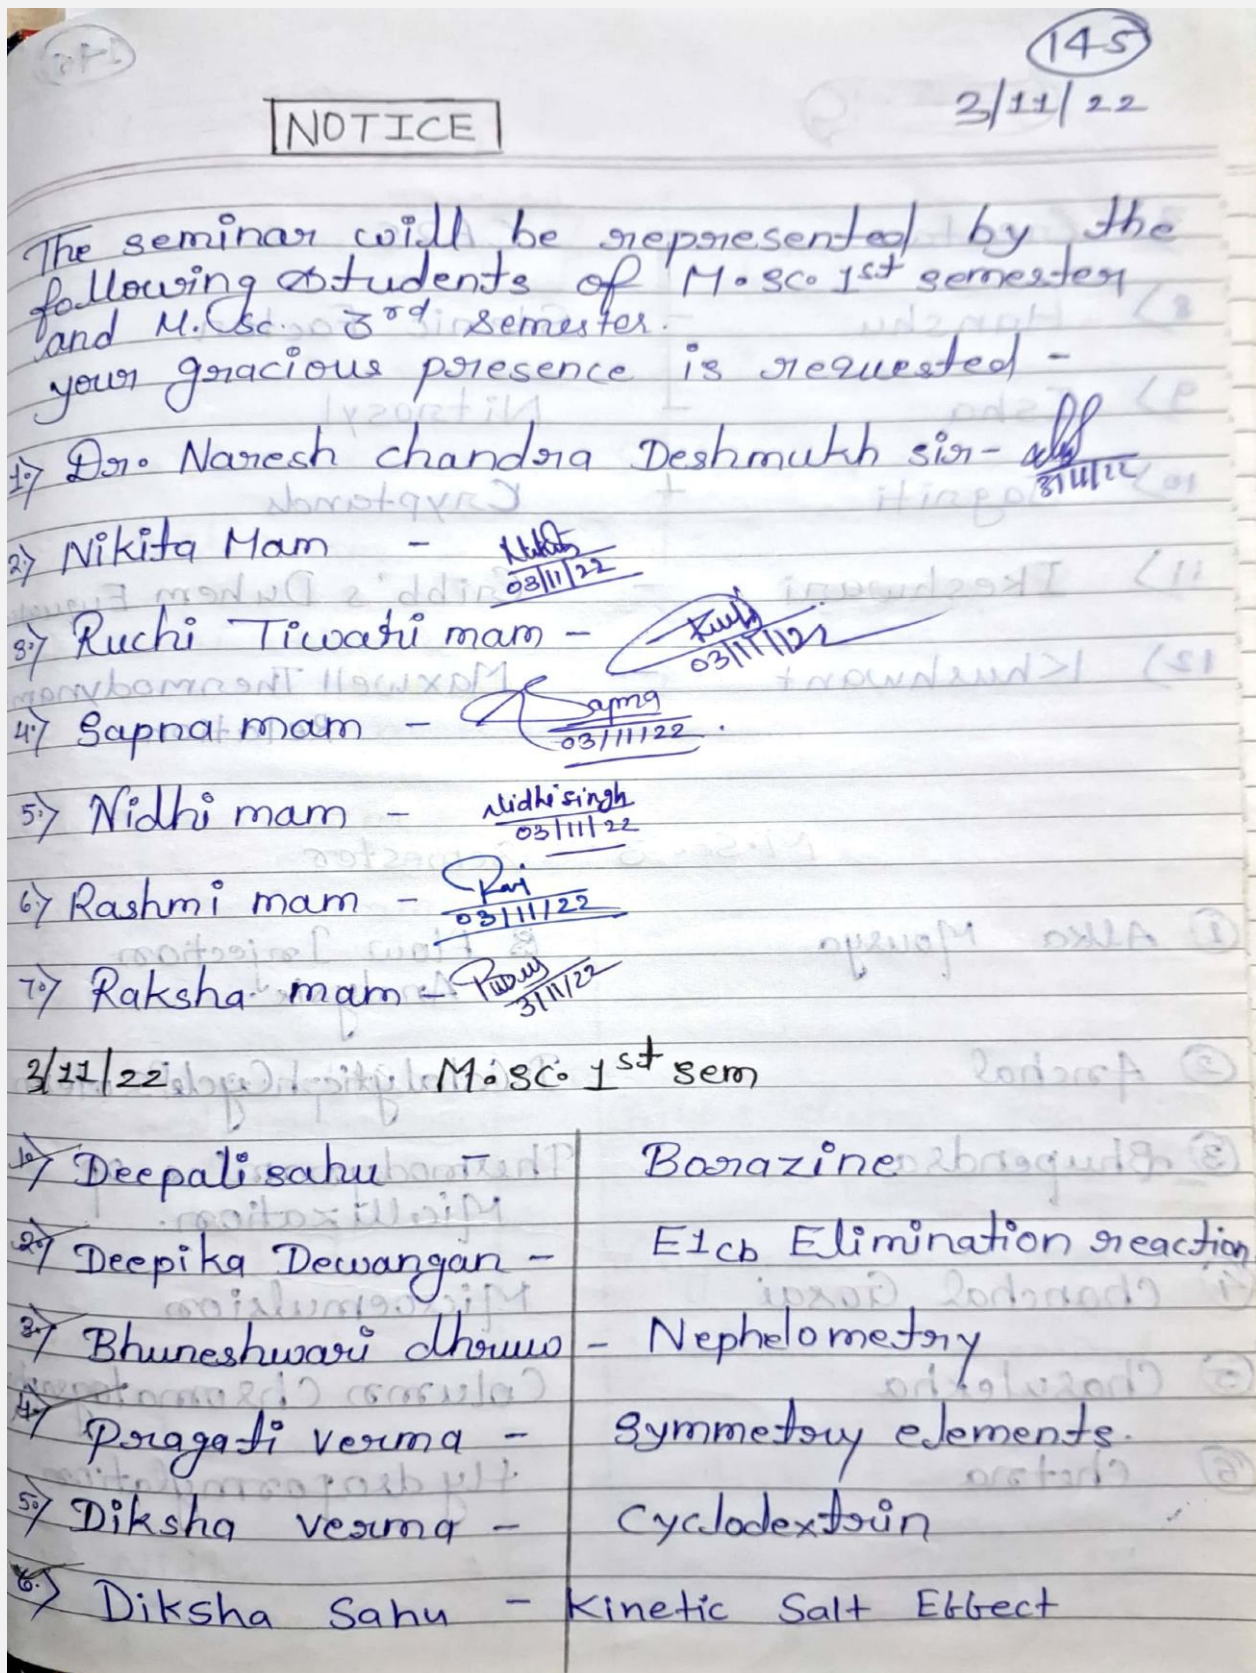 145
3/11/22
NOTICE
The seminar will be represented by the
following students of M.Sc. 1st semester
and M.Sc. 3rd semester.
your gracious presence is requested -
1.) Dr. Naresh chandra Deshmukh sir -
3/11/22
2.) Nikita Mam - Nikita
03/11/22
3.) Ruchi Tiwari mam - Ruchi
03/11/22
4.) Sapna mam - Sapna
03/11/22.
5.) Nidhi mam - Nidhi singh
03/11/22
6.) Rashmi mam -
03/11/22
7.) Raksha mam -
3/11/22
3/11/22 M.Sc. 1st sem
1.) Deepali sahu - Borazine
2.) Deepika Dewangan - E1cb Elimination reaction
3.) Bhuneshwari dhruw - Nephelometry
4.) Pragati verma - Symmetry elements.
5.) Diksha verma - Cyclodextrin
6.) Diksha Sahu - Kinetic Salt Effect